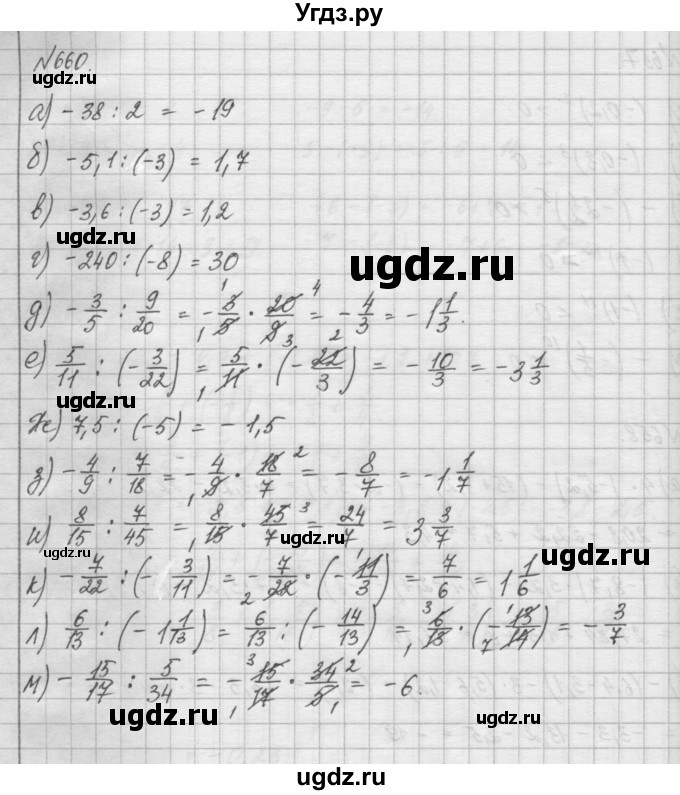 Угдз.ру
№660.
ugdz.ru
а) -38 : 2 = -19
б) -5,1 : (-3) = 1,7
в) -3,6 : (-3) = 1,2
ugdz.ru
ugdz.ru
г) -240 : (-8) = 30
д) -3/5 : 9/20 = -3/5 · 20/9 = -4/3 = -1 1/3.
е) 5/11 : (-3/22) = 5/11 · (-22/3) = -10/3 = -3 1/3
ugdz.ru
ж) 7,5 : (-5) = -1,5
з) -4/9 : 7/18 = -4/9 · 18/7 = -8/7 = -1 1/7
и) 8/15 : 7/45 = 8/15 · 45/7 = 24/7 = 3 3/7
ugdz.ru
ugdz.ru
к) -7/22 : (-3/11) = -7/22 · (-11/3) = 7/6 = 1 1/6
л) 6/13 : (-1 1/13) = 6/13 : (-14/13) = 6/13 · (-13/14) = -3/7
м) -15/17 : 5/34 = -15/17 · 34/5 = -6.
ugdz.ru
ugdz.ru
ugdz.ru